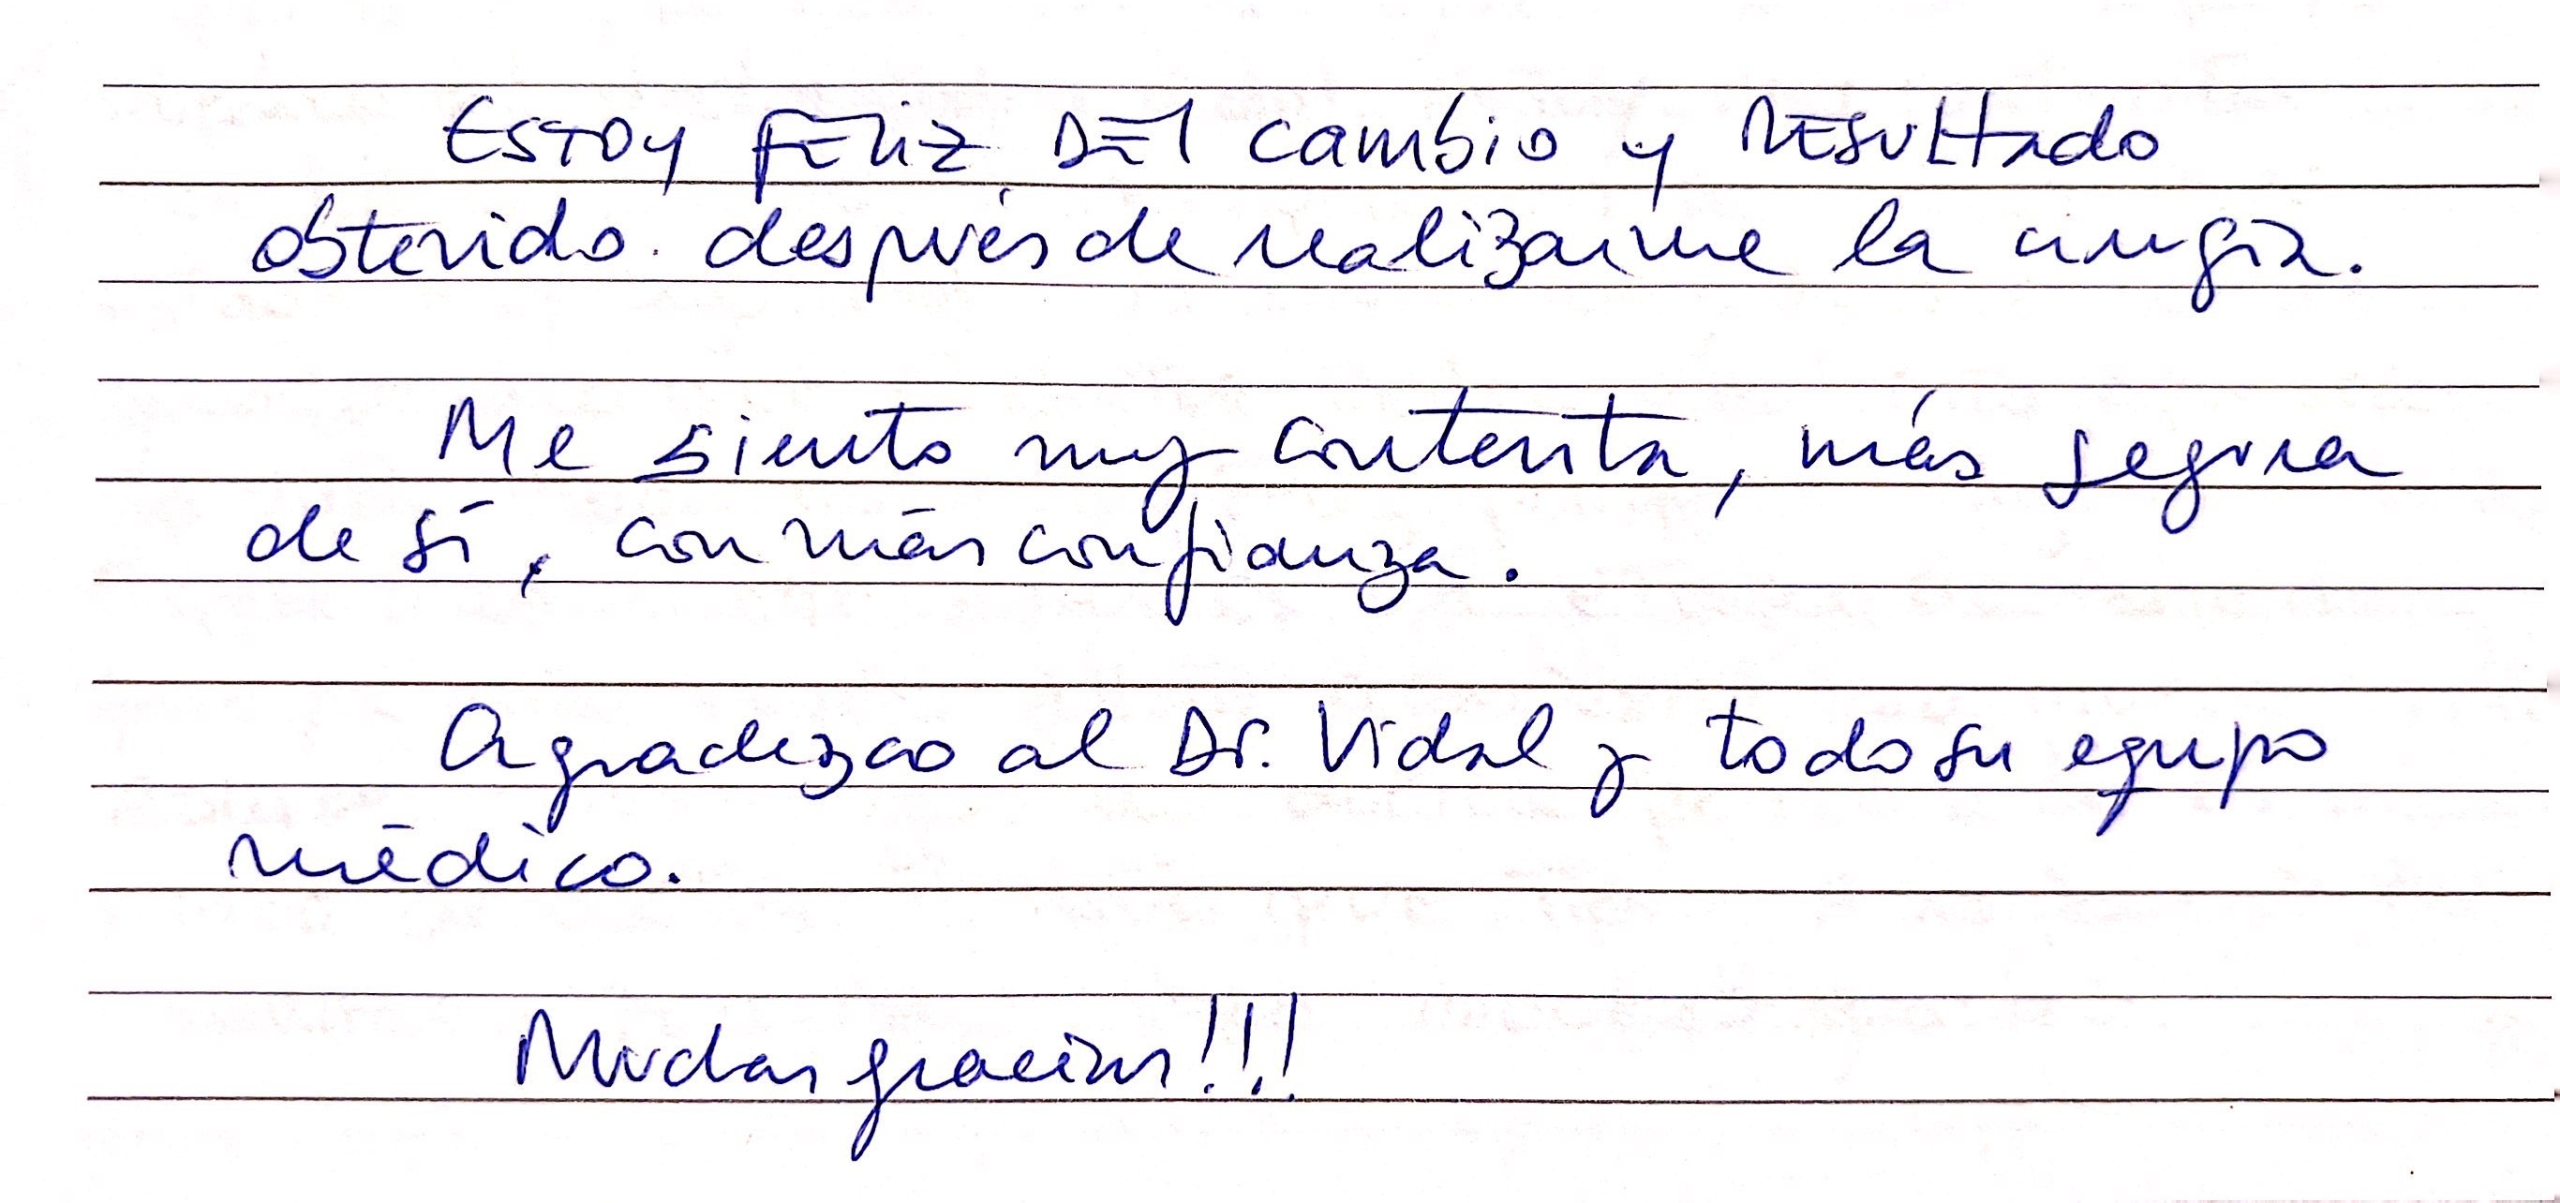 Estoy feliz del cambio y resultado
obtenido. después de realizarme la cirugía.
Me siento muy contenta, más segura
de sí, con más confianza.
Agradezco al Dr. Vidal y todo su equipo
médico.
Muchas gracias!!!